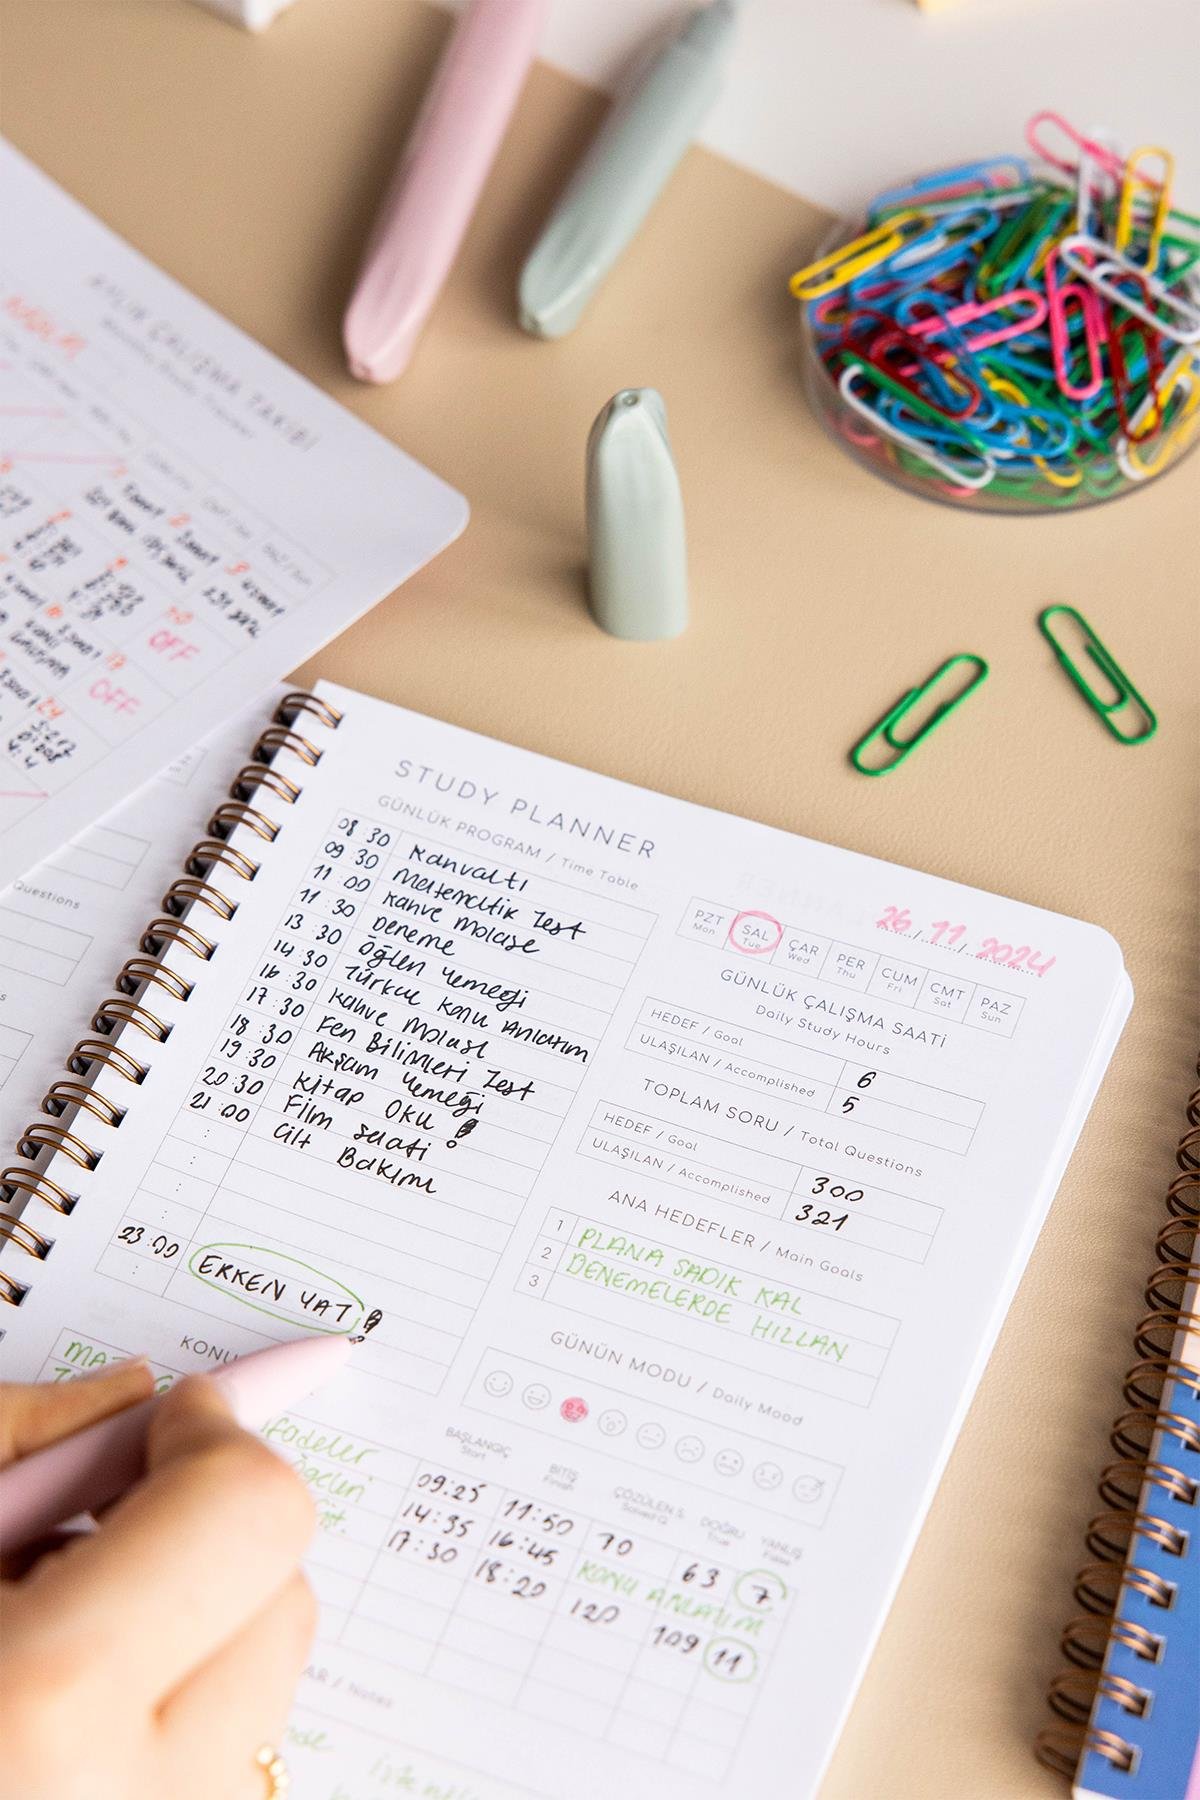 AYLIK ÇALIŞMA TAKİBİ
Monthly Study Tracker
OFF
OFF
Questions
STUDY PLANNER
GÜNLÜK PROGRAM / Time Table
08:30 Kahvaltı
09:30 Matematik Test
11:00 Kahve Molası
11:30 Deneme
13:30 Öğlen Yemeği
14:30 Türkçe Konu Anlatım
16:30 Kahve Molası
17:30 Fen Bilimleri Test
18:30 Akşam Yemeği
19:30 Kitap Oku !
20:30 Film Saati
21:00 Cilt Bakımı
:
:
:
23:00 ERKEN YAT !
:
26/11/2024
PZT SAL ÇAR PER CUM CMT PAZ
Mon Tue Wed Thu Fri Sat Sun
GÜNLÜK ÇALIŞMA SAATİ
Daily Study Hours
HEDEF / Goal 6
ULAŞILAN / Accomplished 5
TOPLAM SORU / Total Questions
HEDEF / Goal 300
ULAŞILAN / Accomplished 321
ANA HEDEFLER / Main Goals
1 PLANA SADIK KAL
2 DENEMELERDE HIZLAN
3
GÜNÜN MODU / Daily Mood
KONU
BAŞLANGIÇ BİTİŞ ÇÖZÜLEN S. DOĞRU YANLIŞ
Start Finish Solved Q. True False
MAT 09:25 11:50 70 63 7
ifadeler 14:35 16:45 KONU ANLATIM
ögelin 17:30 18:20 120 109 11
AR / Notes